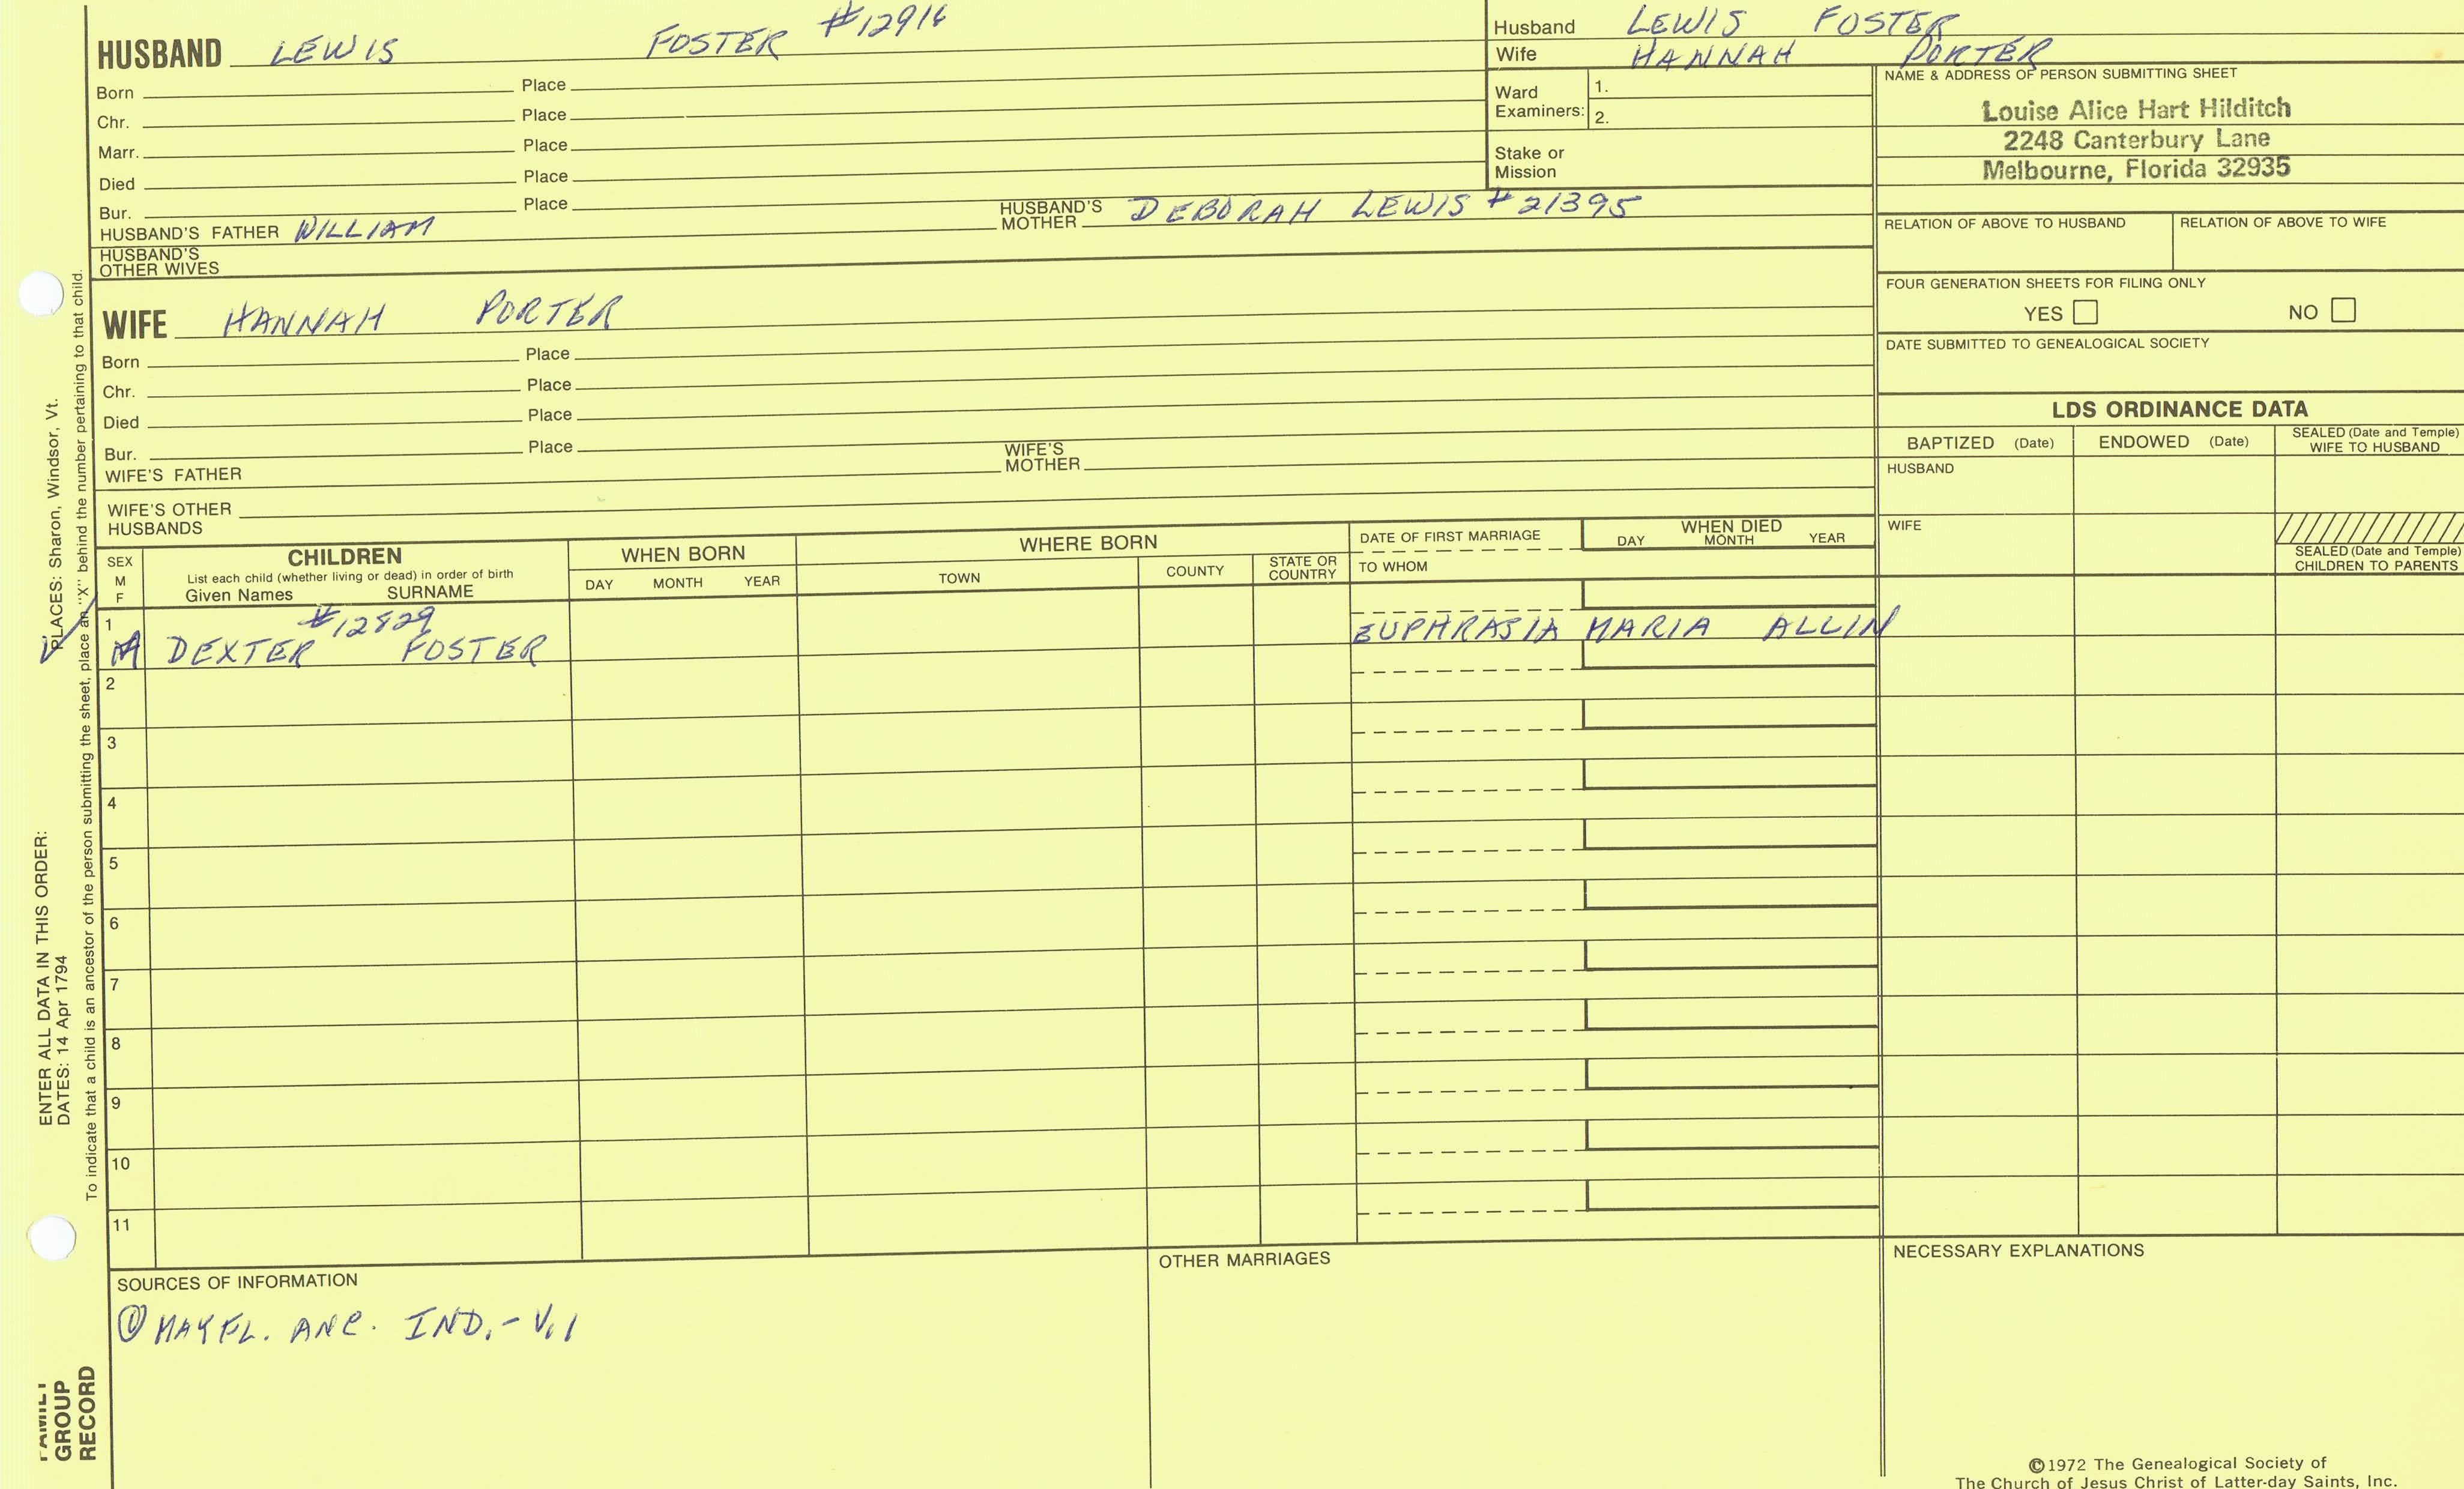 HUSBAND LEWIS FOSTER #12916
Born Place
Chr. Place
Marr. Place
Died Place
Bur. Place
HUSBAND'S FATHER WILLIAM HUSBAND'S MOTHER DEBORAH LEWIS #21395
HUSBAND'S OTHER WIVES
WIFE HANNAH PORTER
Born Place
Chr. Place
Died Place
Bur. Place
WIFE'S FATHER WIFE'S MOTHER
WIFE'S OTHER HUSBANDS
Husband LEWIS FOSTER
Wife HANNAH PORTER
Ward Examiners: 1.
2.
Stake or Mission
NAME & ADDRESS OF PERSON SUBMITTING SHEET
Louise Alice Hart Hilditch
2248 Canterbury Lane
Melbourne, Florida 32935
RELATION OF ABOVE TO HUSBAND RELATION OF ABOVE TO WIFE
FOUR GENERATION SHEETS FOR FILING ONLY
YES NO
DATE SUBMITTED TO GENEALOGICAL SOCIETY
LDS ORDINANCE DATA
BAPTIZED (Date) ENDOWED (Date) SEALED (Date and Temple) WIFE TO HUSBAND
HUSBAND
WIFE
SEALED (Date and Temple) CHILDREN TO PARENTS
SEX M F
CHILDREN
List each child (whether living or dead) in order of birth
Given Names SURNAME
WHEN BORN
DAY MONTH YEAR
WHERE BORN
TOWN COUNTY STATE OR COUNTRY
DATE OF FIRST MARRIAGE
TO WHOM
WHEN DIED
DAY MONTH YEAR
1 #12829
DEXTER FOSTER EUPHRASIA MARIA ALLIN
2
3
4
5
6
7
8
9
10
11
SOURCES OF INFORMATION
① MAYFL. ANC. IND. - V.1
OTHER MARRIAGES
NECESSARY EXPLANATIONS
©1972 The Genealogical Society of
The Church of Jesus Christ of Latter-day Saints, Inc.
ENTER ALL DATA IN THIS ORDER:
DATES: 14 Apr 1794 PLACES: Sharon, Windsor, Vt.
To indicate that a child is an ancestor of the person submitting the sheet, place an "X" behind the number pertaining to that child.
FAMILY
GROUP
RECORD